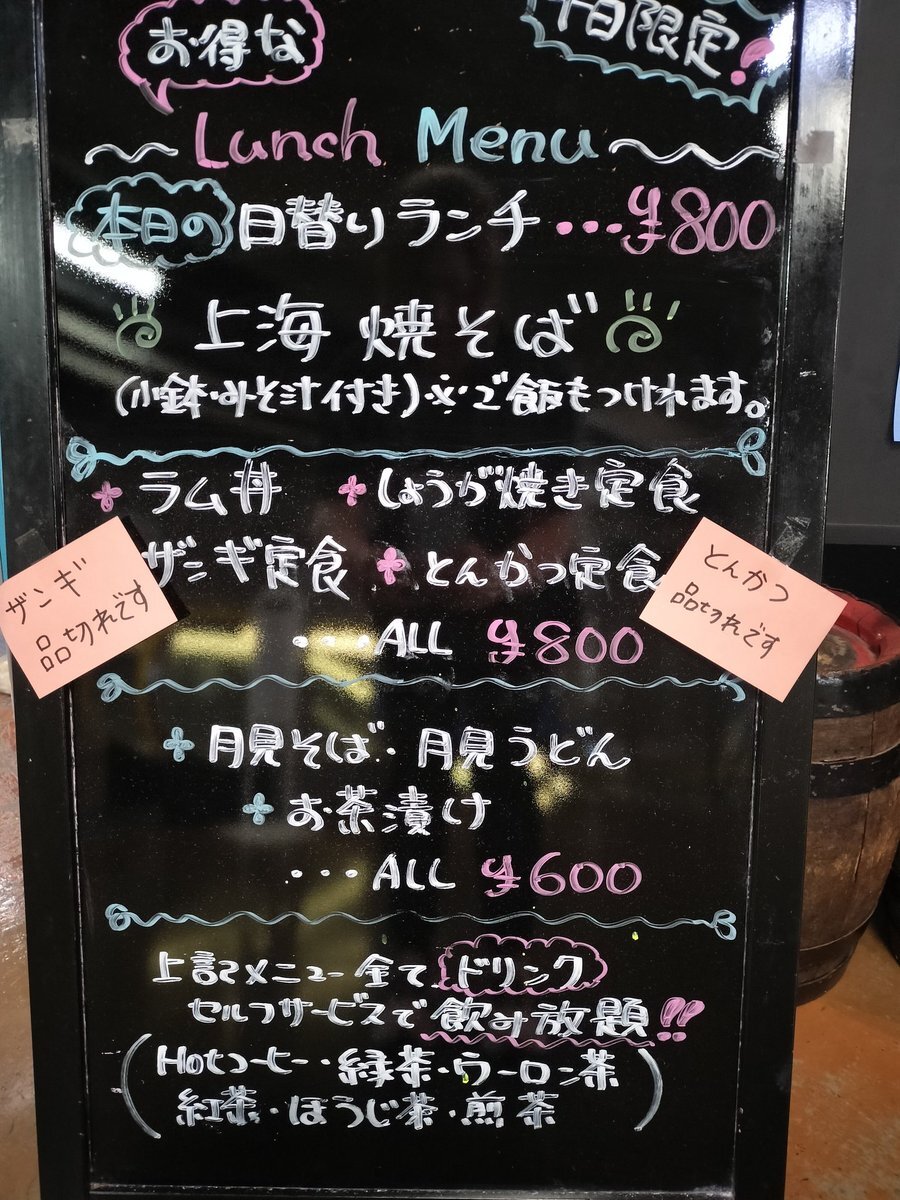 お得な
日限定!
Lunch Menu
本日の日替りランチ・・・¥800
上海 焼そば
(小鉢・みそ汁付き)※ご飯もつけれます。
ラム丼 しょうが焼き定食
ザンギ定食 とんかつ定食
ザンギ
品切れです
とんかつ
品切れです
・・・ALL ¥800
月見そば・月見うどん
お茶漬け
・・・ALL ¥600
上記メニュー全てドリンク
セルフサービスで飲み放題!!
(Hotコーヒー・緑茶・ウーロン茶
紅茶・ほうじ茶・煎茶)